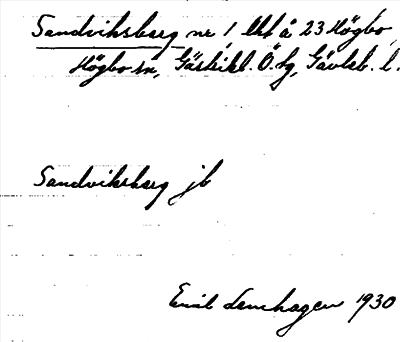 Sandviksberg nr 1 lht å 23 Högbo,
Högbo sn, Gästrikl. Ö. tg, Gävleb. l.
Sandviksberg jb
Emil Lenhagen 1930